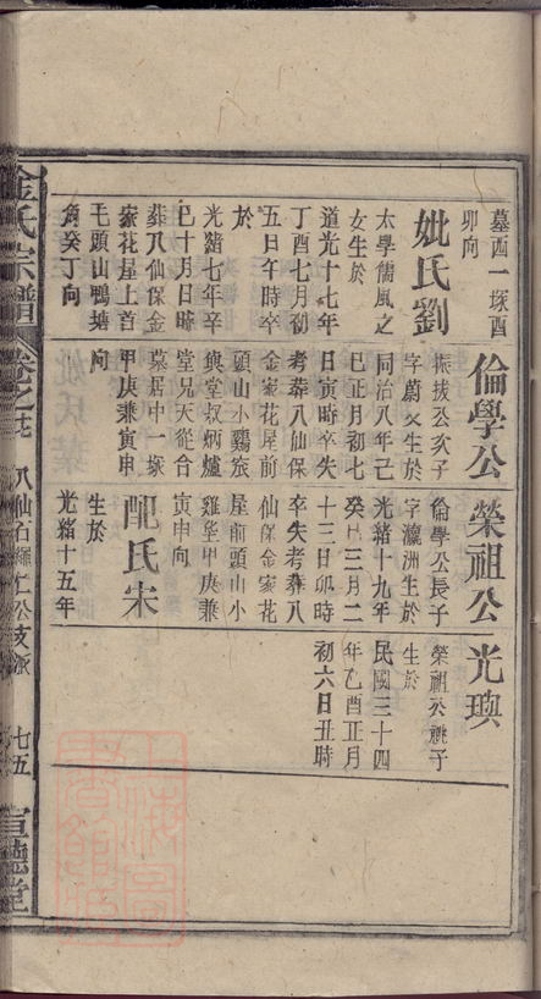 墓西一塚酉
卯向
妣氏劉
太學儒風之
女生於
道光十七年
丁酉七月初
五日午時卒
於
光緒七年辛
巳十月日時
葬八仙保金
家花屋上首
毛頭山鴨塘
角癸丁向
倫學公
振拔公次子
字蔚文生於
同治八年己
巳正月初七
日寅時卒失
考葬八仙保
金家花屋前
頭山小鷄
與堂叔炳爐
堂兄天從合
墓居中一塚
甲庚兼寅申
向
榮祖公
倫學公長子
字瀛洲生於
光緒十九年
癸巳三月二
十三日卯時
卒失考葬八
仙保金家花
屋前頭山小
雞甲庚兼
寅申向
配氏宋
生於
光緒十五年
光璵
榮祖公祧子
生於
民國三十四
年乙酉正月
初六日丑時
金氏宗譜
卷之
八仙石仁公支派
七五
宣德堂
上海圖書館藏